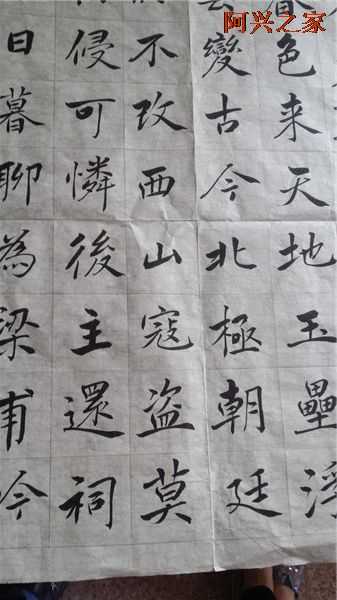 阿兴之家
色来天地玉壘浮
變古今北極朝廷
不改西山寇盗莫
侵可憐後主還祠
日暮聊為梁甫吟